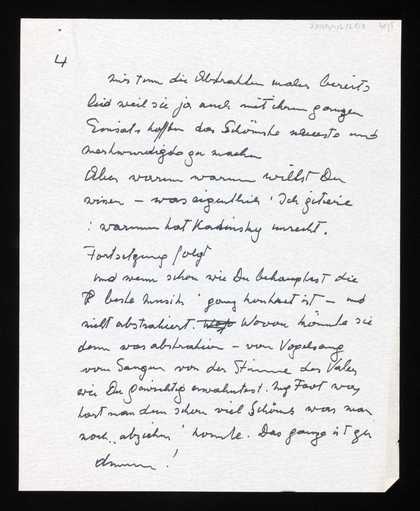 4
mir tun die Abstrakten maler bereits
leid weil sie ja auch mit ihrem ganzen
Einsatz hoffen das Schönste neueste und
merkwürdigste zu machen
Aber warum warum willst Du
wissen – was eigentlich! Ich zitiere
: warum hat Kandinsky unrecht.
Fortsetzung folgt
und wenn schon wie Du behauptest die
beste Musik ganz konkret ist – und
nicht abstrahiert. Wovon könnte sie
denn was abstrahieren – vom Vogelsang
vom Sausen von der Stimme des
wie Du erwähntest. was
hast man dem schon viel Schönes was man
noch „abziehen" konnte. Das ganze ist zu
dumm!